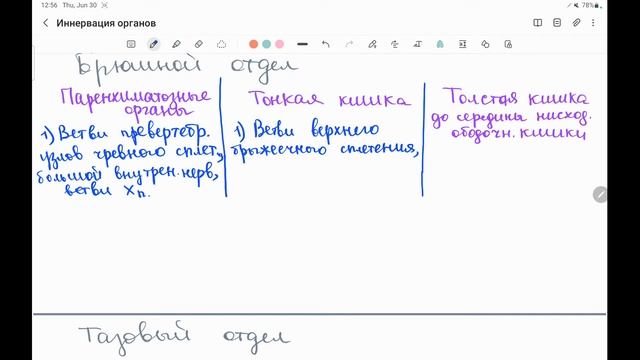 12:56 Thu, Jun 30
78%
Иннервация органов
Брюшной отдел
Паренхиматозные
органы
1) Ветви превертебр.
узлов чревного сплет.,
большой внутрен. нерв,
ветви Xп.
Тонкая кишка
1) Ветви верхнего
брыжеечного сплетения,
Толстая кишка
до середины нисход.
ободочн. кишки
Тазовый отдел